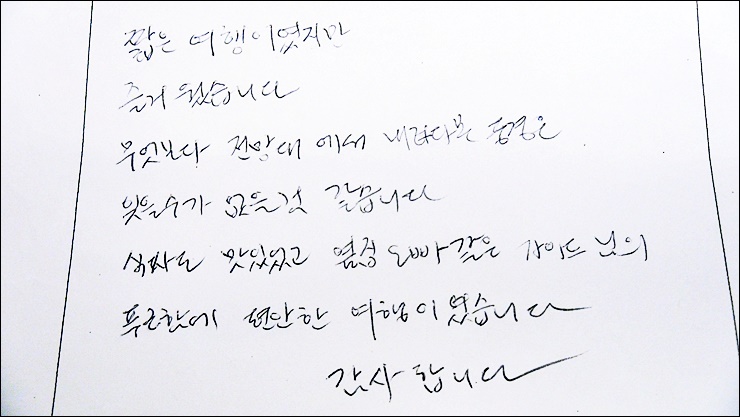 짧은 여행이였지만
즐거 웠습니다
무엇보다 전망대 에서 내려다본 풍경은
잊을수가 없을것 같습니다
식사도 맛있었고 옆집 오빠같은 가이드 님의
푸근함에 편안한 여행이 였습니다
감사 합니다